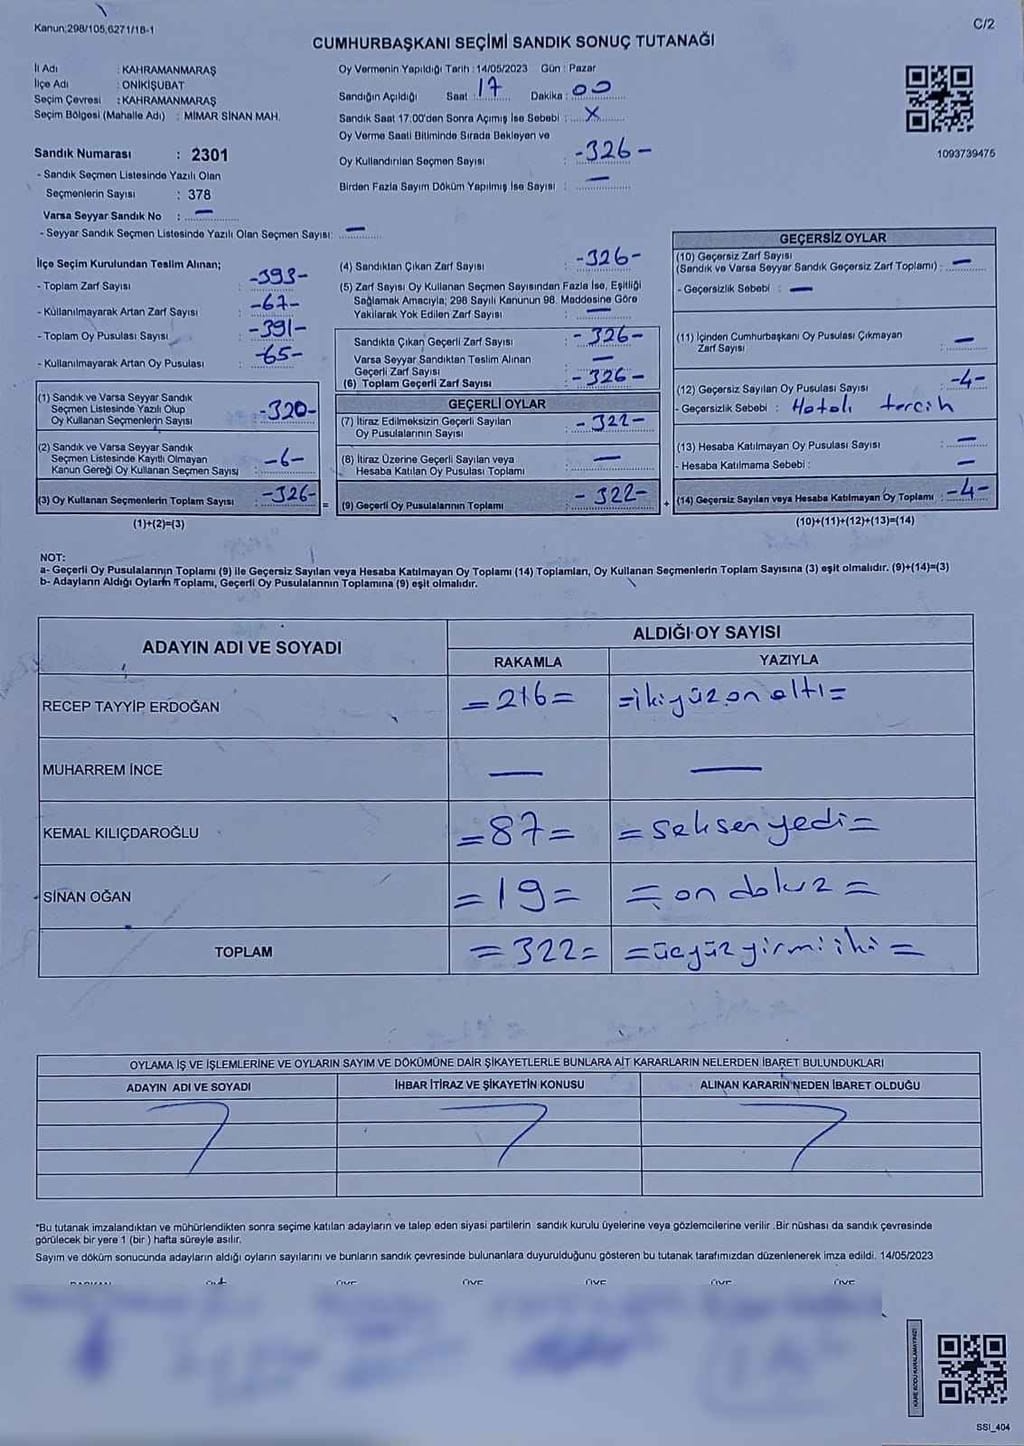 Kanun;298/105,6271/18-1
C/2
CUMHURBAŞKANI SEÇİMİ SANDIK SONUÇ TUTANAĞI
İl Adı : KAHRAMANMARAŞ
İlçe Adı : ONİKİŞUBAT
Seçim Çevresi : KAHRAMANMARAŞ
Seçim Bölgesi (Mahalle Adı) : MİMAR SİNAN MAH.
Sandık Numarası : 2301
- Sandık Seçmen Listesinde Yazılı Olan
Seçmenlerin Sayısı : 378
Varsa Seyyar Sandık No : —
- Seyyar Sandık Seçmen Listesinde Yazılı Olan Seçmen Sayısı: —
Oy Vermenin Yapıldığı Tarih : 14/05/2023 Gün : Pazar
Sandığın Açıldığı Saat : 17 Dakika : 00
Sandık Saat 17.00'den Sonra Açımış İse Sebebi : X
Oy Verme Saati Bitiminde Sırada Bekleyen ve
Oy Kullandırılan Seçmen Sayısı : -326-
Birden Fazla Sayım Döküm Yapılmış İse Sayısı : —
1093739475
İlçe Seçim Kurulundan Teslim Alınan;
- Toplam Zarf Sayısı : -393-
- Kullanılmayarak Artan Zarf Sayısı : -67-
- Toplam Oy Pusulası Sayısı : -391-
- Kullanılmayarak Artan Oy Pusulası : -65-
(1) Sandık ve Varsa Seyyar Sandık
Seçmen Listesinde Yazılı Olup
Oy Kullanan Seçmenlerin Sayısı : -320-
(2) Sandık ve Varsa Seyyar Sandık
Seçmen Listesinde Kayıtlı Olmayan
Kanun Gereği Oy Kullanan Seçmen Sayısı : -6-
(3) Oy Kullanan Seçmenlerin Toplam Sayısı : -326- =
(1)+(2)=(3)
(4) Sandıktan Çıkan Zarf Sayısı : -326-
(5) Zarf Sayısı Oy Kullanan Seçmen Sayısından Fazla İse, Eşitliği
Sağlamak Amacıyla; 298 Sayılı Kanunun 98. Maddesine Göre
Yakılarak Yok Edilen Zarf Sayısı : —
Sandıkta Çıkan Geçerli Zarf Sayısı : -326-
Varsa Seyyar Sandıktan Teslim Alınan
Geçerli Zarf Sayısı : —
(6) Toplam Geçerli Zarf Sayısı : -326-
GEÇERLİ OYLAR
(7) İtiraz Edilmeksizin Geçerli Sayılan
Oy Pusulalarının Sayısı : -322-
(8) İtiraz Üzerine Geçerli Sayılan veya
Hesaba Katılan Oy Pusulası Toplamı : —
(9) Geçerli Oy Pusulalarının Toplamı : -322- +
GEÇERSİZ OYLAR
(10) Geçersiz Zarf Sayısı
(Sandık ve Varsa Seyyar Sandık Geçersiz Zarf Toplamı) : —
- Geçersizlik Sebebi : —
(11) İçinden Cumhurbaşkanı Oy Pusulası Çıkmayan
Zarf Sayısı : —
(12) Geçersiz Sayılan Oy Pusulası Sayısı : -4-
- Geçersizlik Sebebi : Hatalı tercih
(13) Hesaba Katılmayan Oy Pusulası Sayısı : —
- Hesaba Katılmama Sebebi : —
(14) Geçersiz Sayılan veya Hesaba Katılmayan Oy Toplamı : -4-
(10)+(11)+(12)+(13)=(14)
NOT:
a- Geçerli Oy Pusulalarının Toplamı (9) ile Geçersiz Sayılan veya Hesaba Katılmayan Oy Toplamı (14) Toplamları, Oy Kullanan Seçmenlerin Toplam Sayısına (3) eşit olmalıdır. (9)+(14)=(3)
b- Adayların Aldığı Oyların Toplamı, Geçerli Oy Pusulalarının Toplamına (9) eşit olmalıdır.
ADAYIN ADI VE SOYADI
ALDIĞI OY SAYISI
RAKAMLA YAZIYLA
RECEP TAYYİP ERDOĞAN =216= =ikiyüz on altı=
MUHARREM İNCE — —
KEMAL KILIÇDAROĞLU =87= =seksen yedi=
SİNAN OĞAN =19= =on dokuz=
TOPLAM =322= =üçyüz yirmi iki=
OYLAMA İŞ VE İŞLEMLERİNE VE OYLARIN SAYIM VE DÖKÜMÜNE DAİR ŞİKAYETLERLE BUNLARA AİT KARARLARIN NELERDEN İBARET BULUNDUKLARI
ADAYIN ADI VE SOYADI İHBAR İTİRAZ VE ŞİKAYETİN KONUSU ALINAN KARARIN NEDEN İBARET OLDUĞU
*Bu tutanak imzalandıktan ve mühürlendikten sonra seçime katılan adayların ve talep eden siyasi partilerin sandık kurulu üyelerine veya gözlemcilerine verilir .Bir nüshası da sandık çevresinde
görülecek bir yere 1 (bir ) hafta süreyle asılır.
Sayım ve döküm sonucunda adayların aldığı oyların sayılarını ve bunların sandık çevresinde bulunanlara duyurulduğunu gösteren bu tutanak tarafımızdan düzenlenerek imza edildi. 14/05/2023
KARE KODU KARALAMAYINIZ!
SSI_404